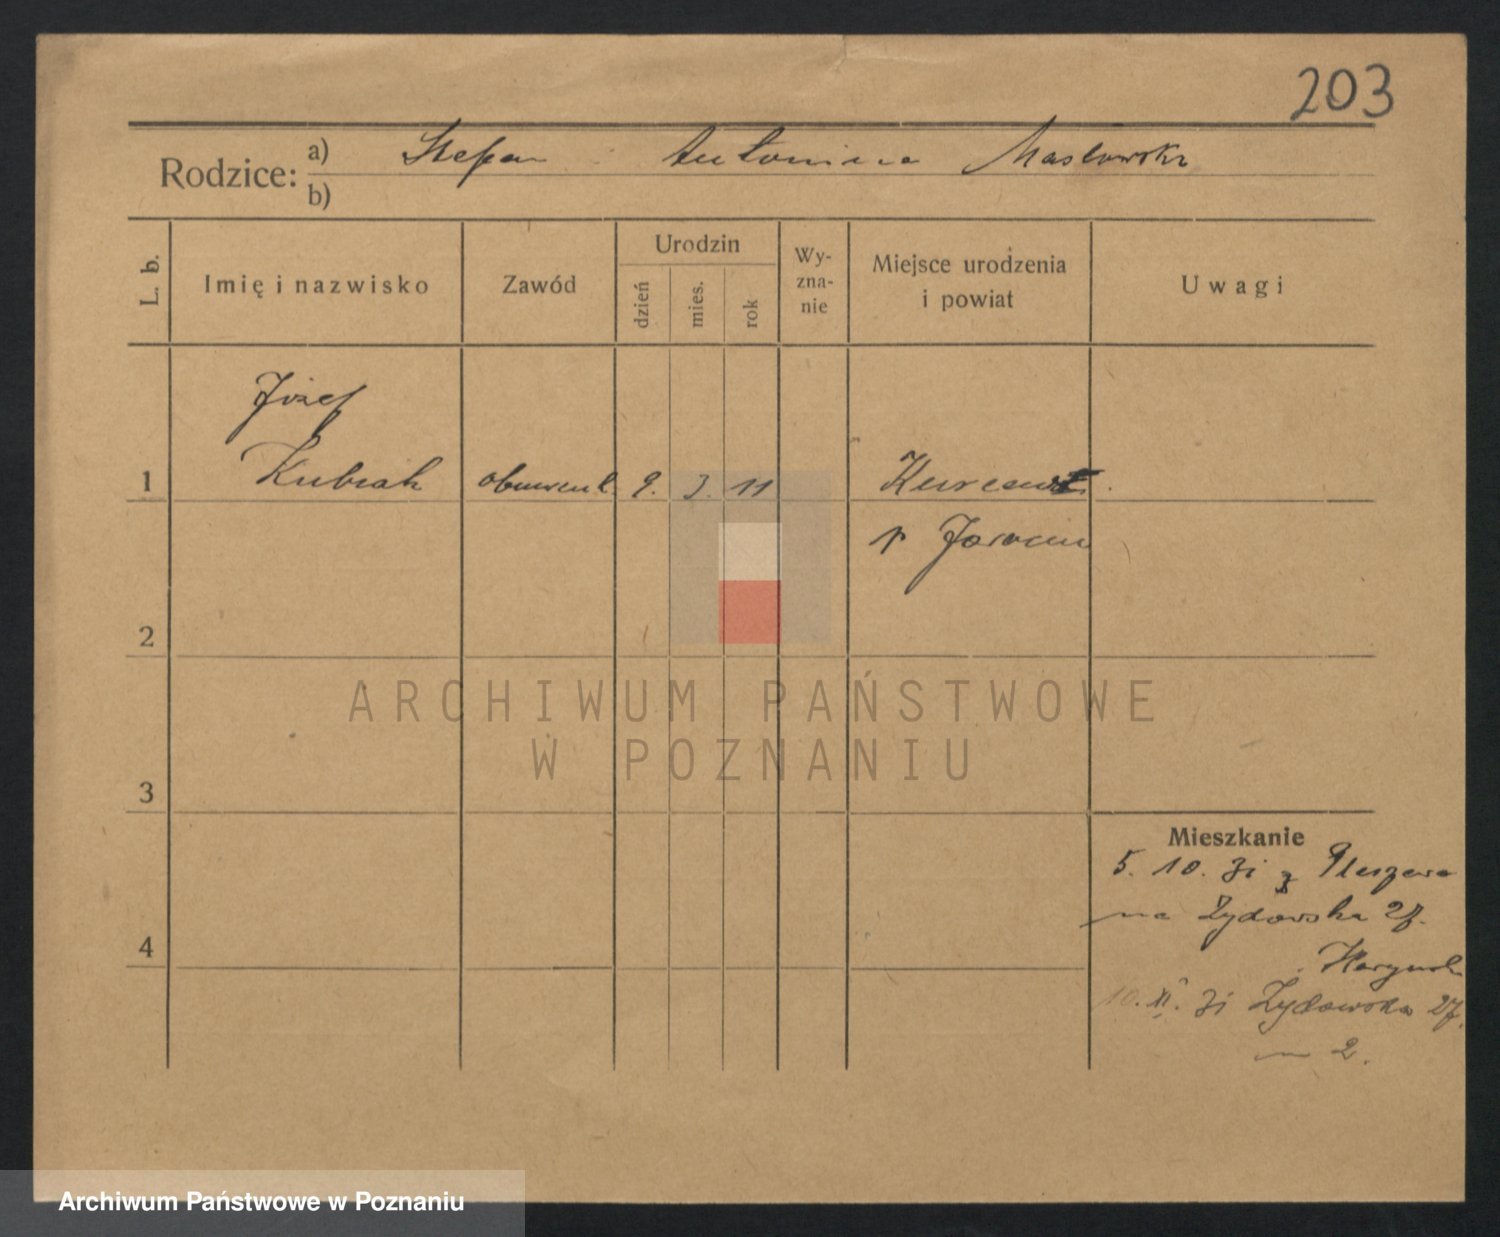 203
Rodzice: a) Stefan Antonina Masłowska
b)
L. b.
Imię i nazwisko
Zawód
Urodzin
dzień
mies.
rok
Wy-
zna-
nie
Miejsce urodzenia
i powiat
Uwagi
Józef
1 Kubiak 9. 3. 11
p Jarocin
2
ARCHIWUM PAŃSTWOWE
W POZNANIU
3
Mieszkanie
5. 10. 31 z Pleszewa
na Żydowska 27.
4
10. XI. 31 Żydowska 27.
m 2.
Archiwum Państwowe w Poznaniu